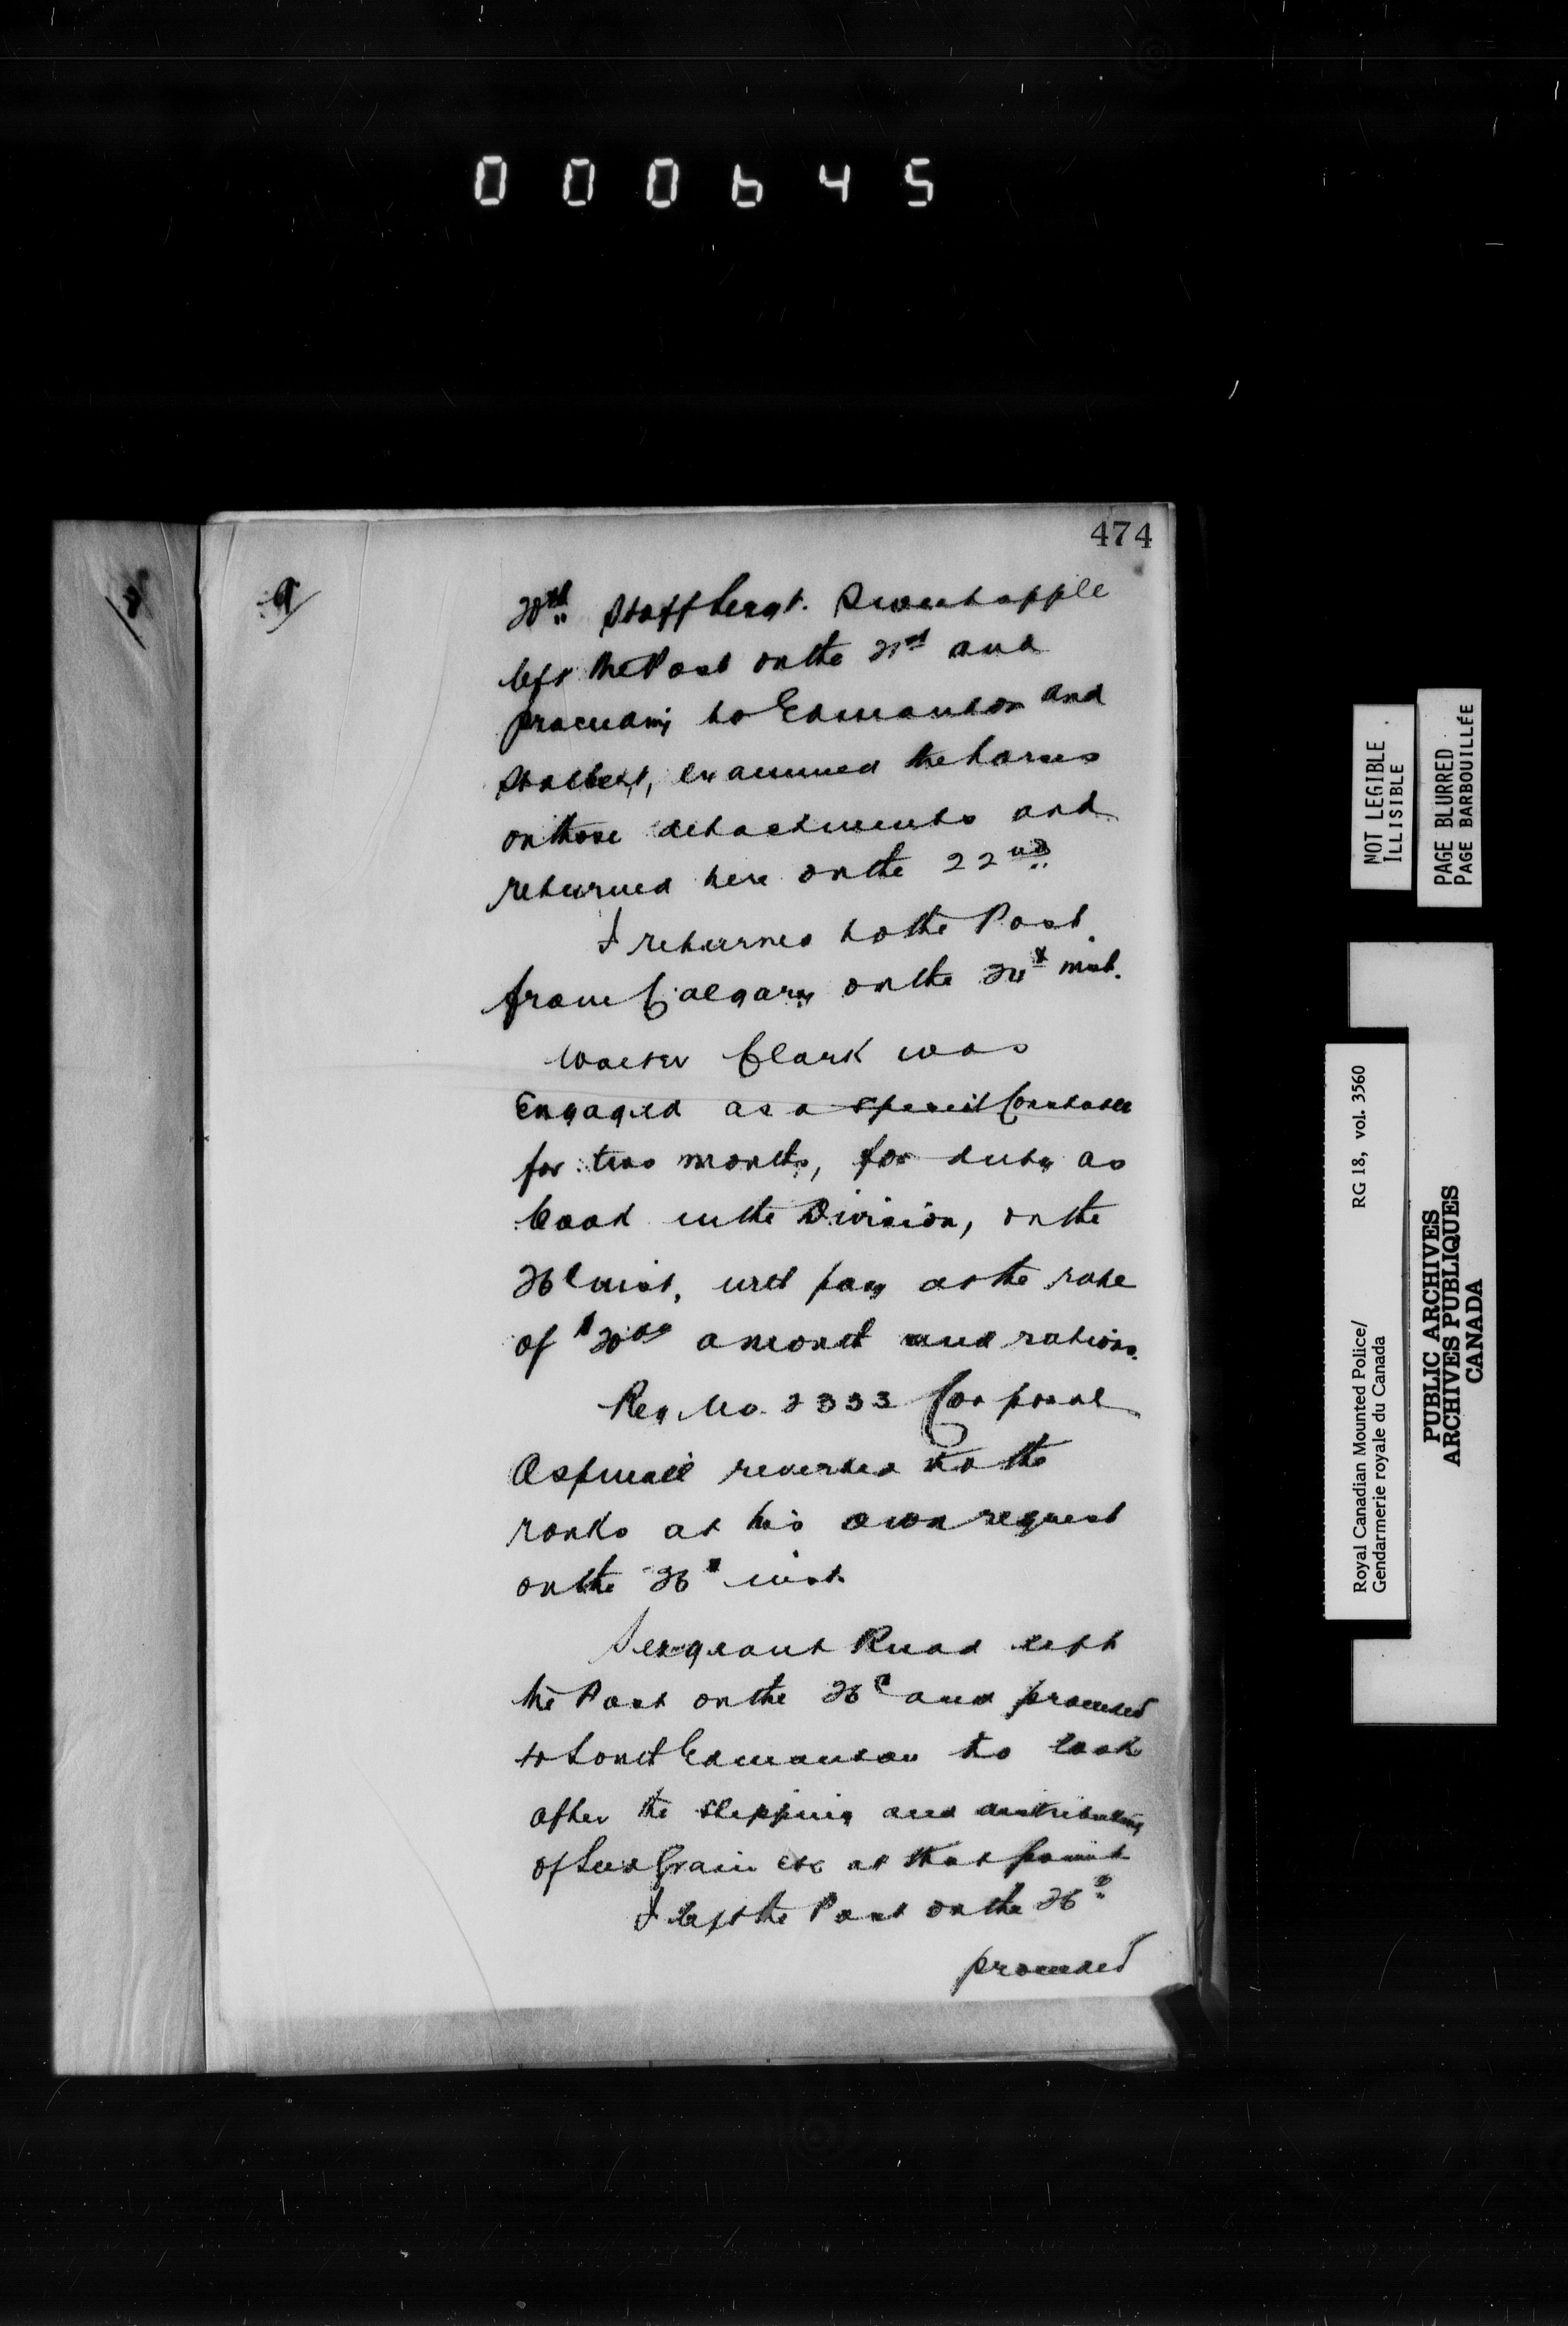 000645
474
9/
20th Staff Sergt. Sweetapple
left the Post on the 21st and
proceeding to Edmonton and
St Albert, examined the horses
on those detachments and
returned here on the 22nd
I returned to the Post
from Calgary on the inst.
Walter Clark was
Engaged as a special Constable
for two months, for duty as
Cook in the Division, on the
26th inst, with pay at the rate
of $30.00 a month and rations.
Reg No. 2333 Corporal
Aspinall reverted to the
ranks at his own request
on the 26th inst.
Sergeant left
the Post on the 26th and proceeded
to South Edmonton to look
after the shipping and distributing
of Seed Grain etc at that point
I left the Post on the 26th
proceeded
NOT LEGIBLE
ILLISIBLE
PAGE BLURRED
PAGE BARBOUILLÉE
Royal Canadian Mounted Police/ RG 18, vol. 3560
Gendarmerie royale du Canada
PUBLIC ARCHIVES
ARCHIVES PUBLIQUES
CANADA